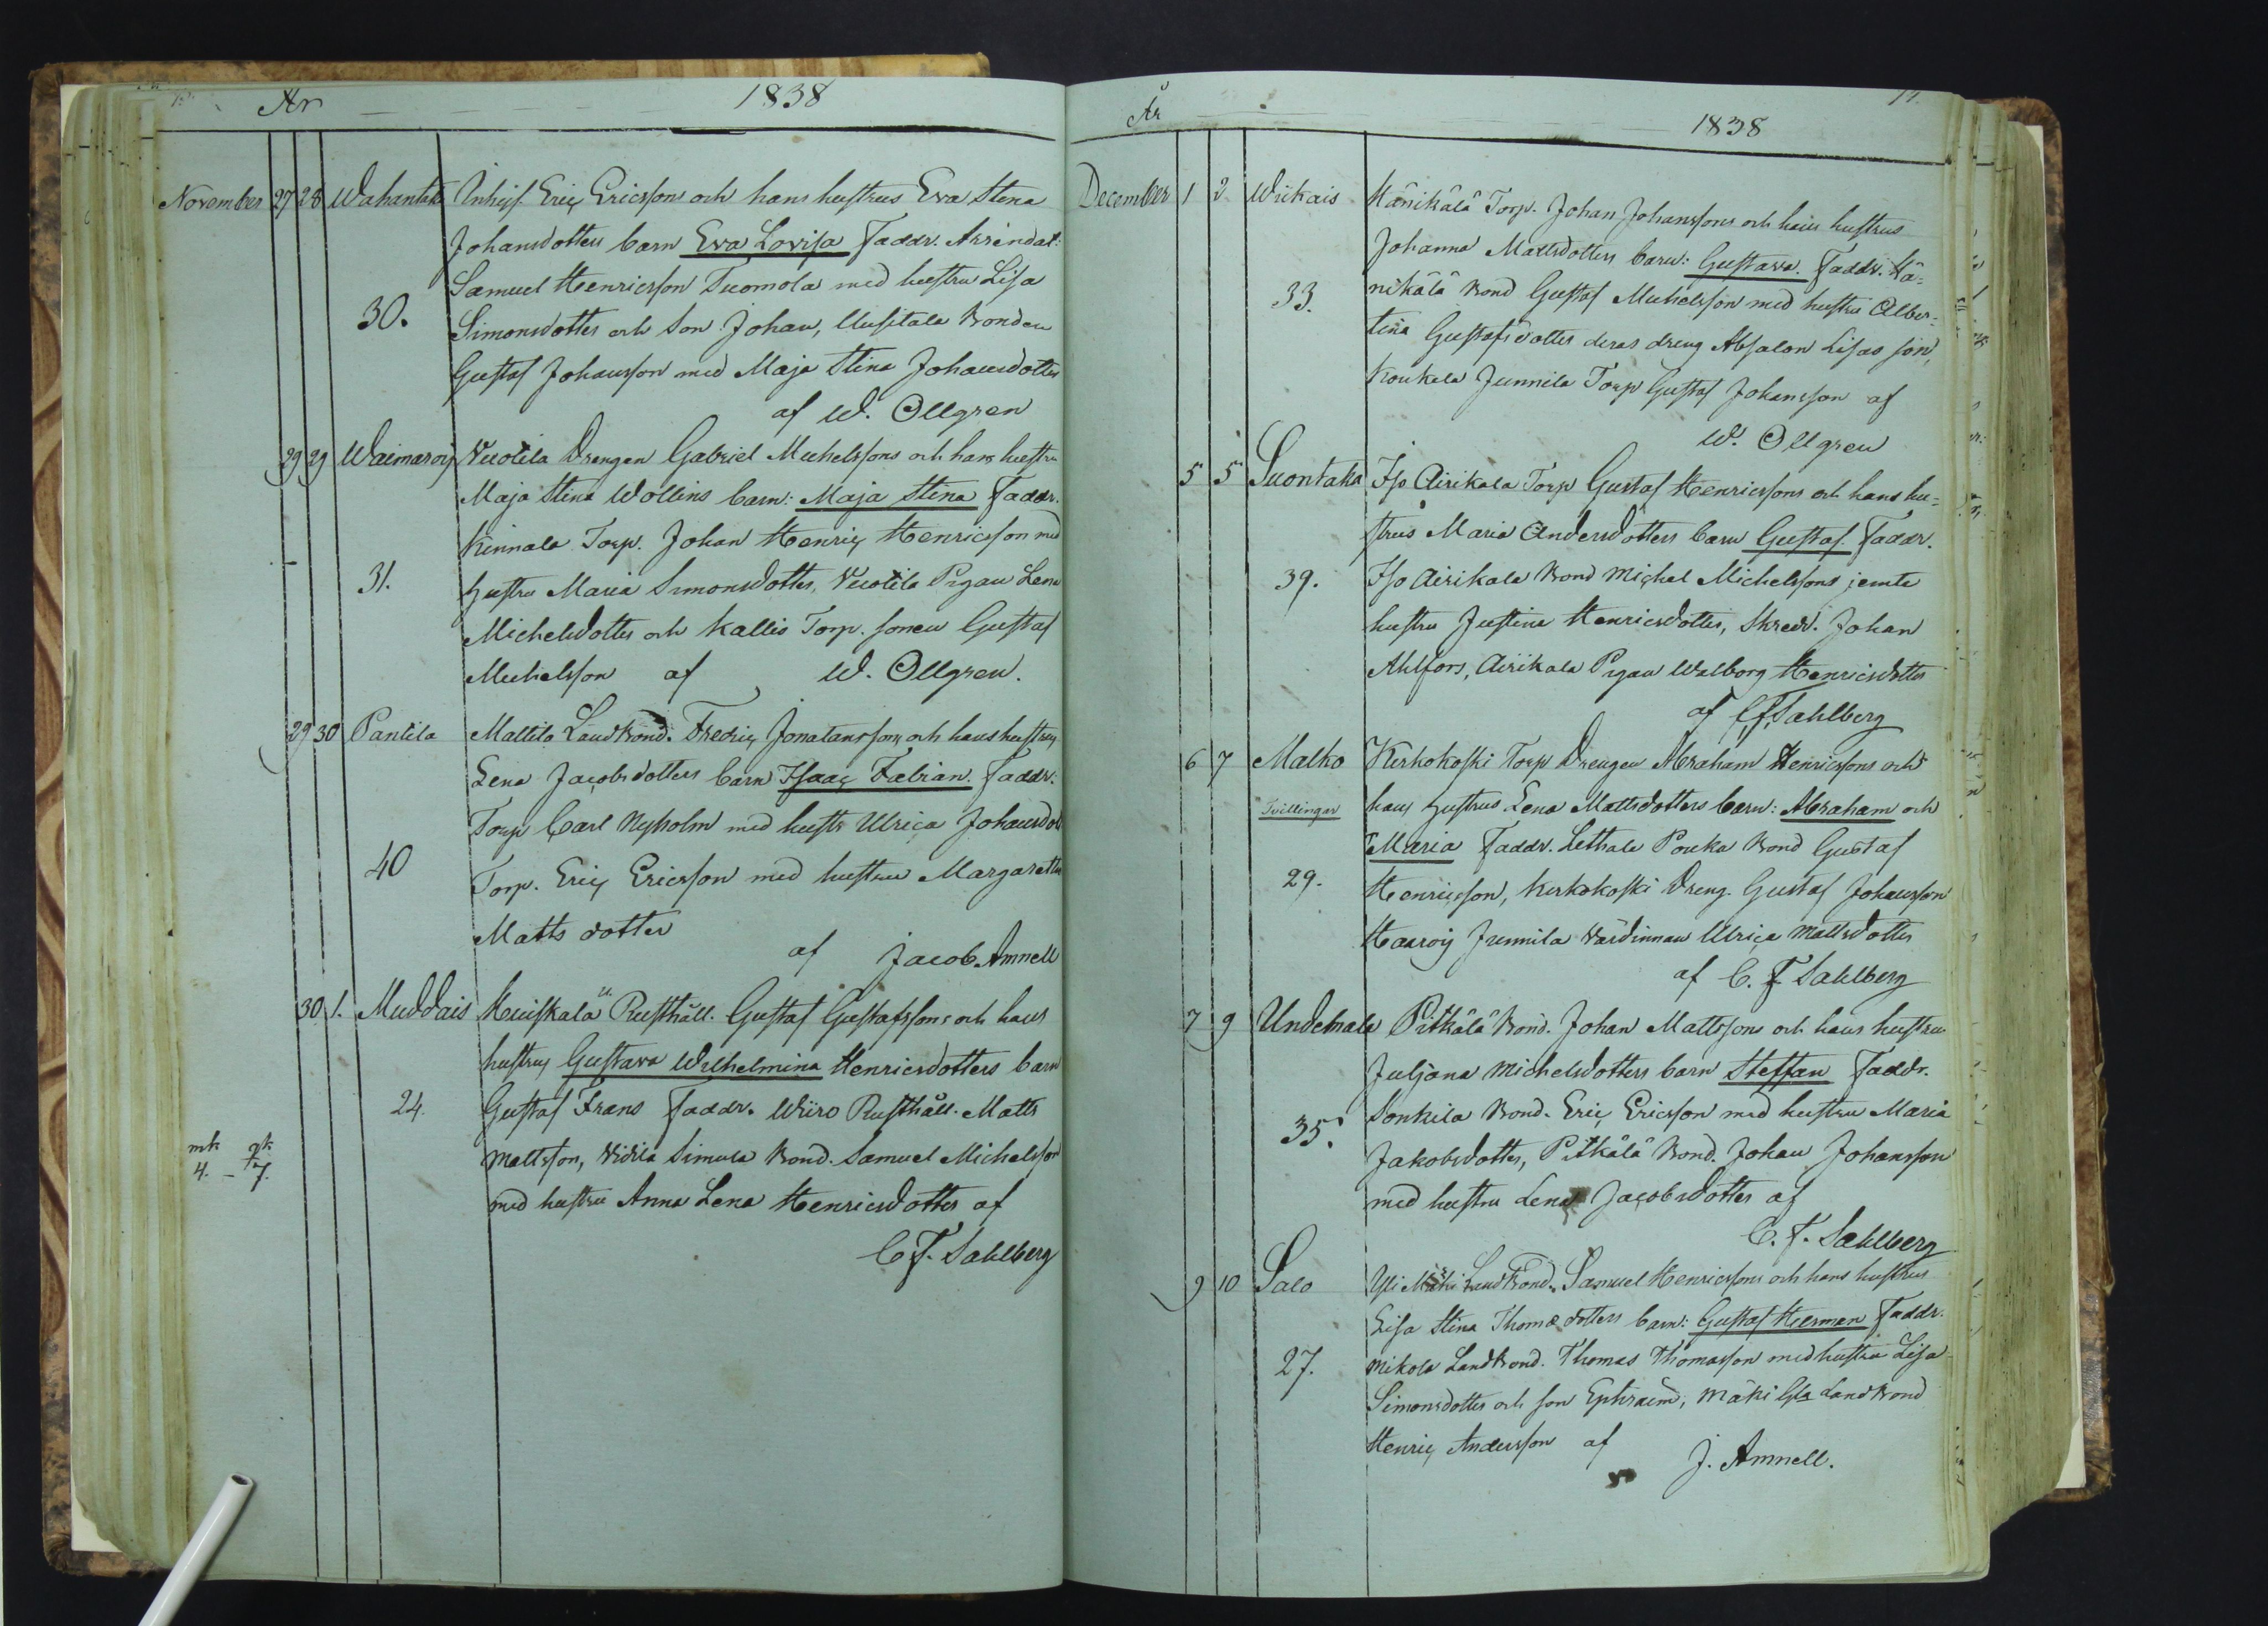 År 1838
November 27 28 Wahantaka Inhys. Eric Ericssons och hans hustrus Eva Stina
Johansdotters barn Eva Lovisa Faddr. Arrendat:
Samuel Henricsson Tuomola med hustru Lisa
30. Simonsdotter och Son Johan, Uusitalo Bonden
Gustaf Johansson med Maja Stina Johansdotter
af W. Ollgren
29 29 Waimaroij Wuotila Drengen Gabriel Michelssons och hans hustru
Maja Stina Wollins barn: Maja Stina Faddr.
Kinnala Torp. Johan Henric Henricsson med
31. hustru Maria Simonsdotter, Wuotila Pigan Lena
Michelsdotter och Kallis Torp. sonen Gustaf
Michelsson af W. Ollgren.
29 30 Pantila Mattila Landbond. Fredric Jonatanssons och hans hustrus
Lena Jacobsdotters barn Isaac Fabian. Faddr.
Torp Carl Nyholm med hustr Ulrica Johansdott
40 Torp. Eric Ericsson med hustru Margaretha
Matts dotter
af Jacob Amnell
30 1. Muddais Huiskala Rusthåll. Gustaf Gustafssons och hans
hustrus Gustava Wilhelmina Henricsdotters barn
24. Gustaf Frans Faddr. Wiiro Rusthåll. Matts
Mattsson, Simula Bond. Samuel Michelsson
mk
4. – 7.
med hustru Anna Lena Henricsdotter af
C F. Sahlberg
År 1838
December 1 2 Wiikais Hänikälä Torp. Johan Johanssons och hans hustrus
Johanna Mattsdotters barn: Gustava. Faddr. Hä-
33. nikälä Bond Gustaf Michelsson med hustru Alber-
tina Gustafsdotter deras dreng Absalon Lisas son,
Koukala Junnila Torp Gustaf Johansson af
W. Ollgren
5 5 Suontaka Iso Airikala Torp Gustaf Henricssons och hans hu-
strus Maria Andersdotters barn Gustaf. Faddr.
39. Iso Airikala Bond Michel Michelssons jemte
hustru Justina Henricsdotter, Skredr. Johan
Ahlfors, Airikala Pigan Walborg Henricsdotter
af C F Sahlberg
6 7 Malko Kerkokoski Torp Drengen Abraham Henricssons och
Tvillingar hans hustrus Lena Mattsdotters barn: Abraham och
Maria Faddr. Lethala Pouka Bond Gustaf
29. Henricsson, Kerkokoski Dreng. Gustaf Johansson
Haaroij Junnila Värdinnan Ulrica Mattsdotter
af C. F Sahlberg
7 9 Undemala Pitkälä Bond. Johan Mattssons och hans hustru
Juliana Michelsdotters barn Steffan Faddr.
Sonkila Bond. Eric Ericsson med hustru Maria
35. Jakobsdotter, Pitkälä Bond. Johan Johansson
med hustru Lena Jacobsdotter af
C. F. Sahlberg
9 10 Salo Yli Mäki Landbond. Samuel Henricssons och hans hustrus
Lisa Stina Thomædotters barn: Gustaf Herman Faddr.
27. Mikola Landbond. Thomas Thomasson med hustru Lisa
Simonsdotter och son Ephraim, Mäki Landbond
Henric Andersson af
J. Amnell.